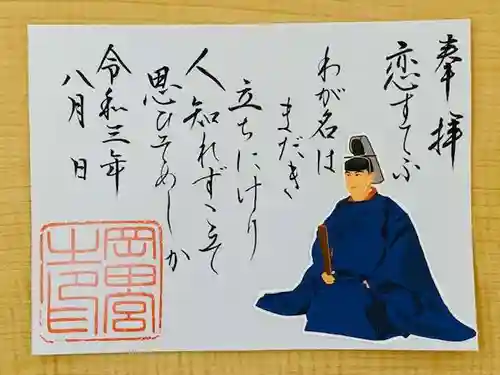 奉拝
恋すてふ
わが名は
まだき
立ちにけり
人知れずこそ
思ひそめしか
令和三年
八月 日
岡田宮
之印